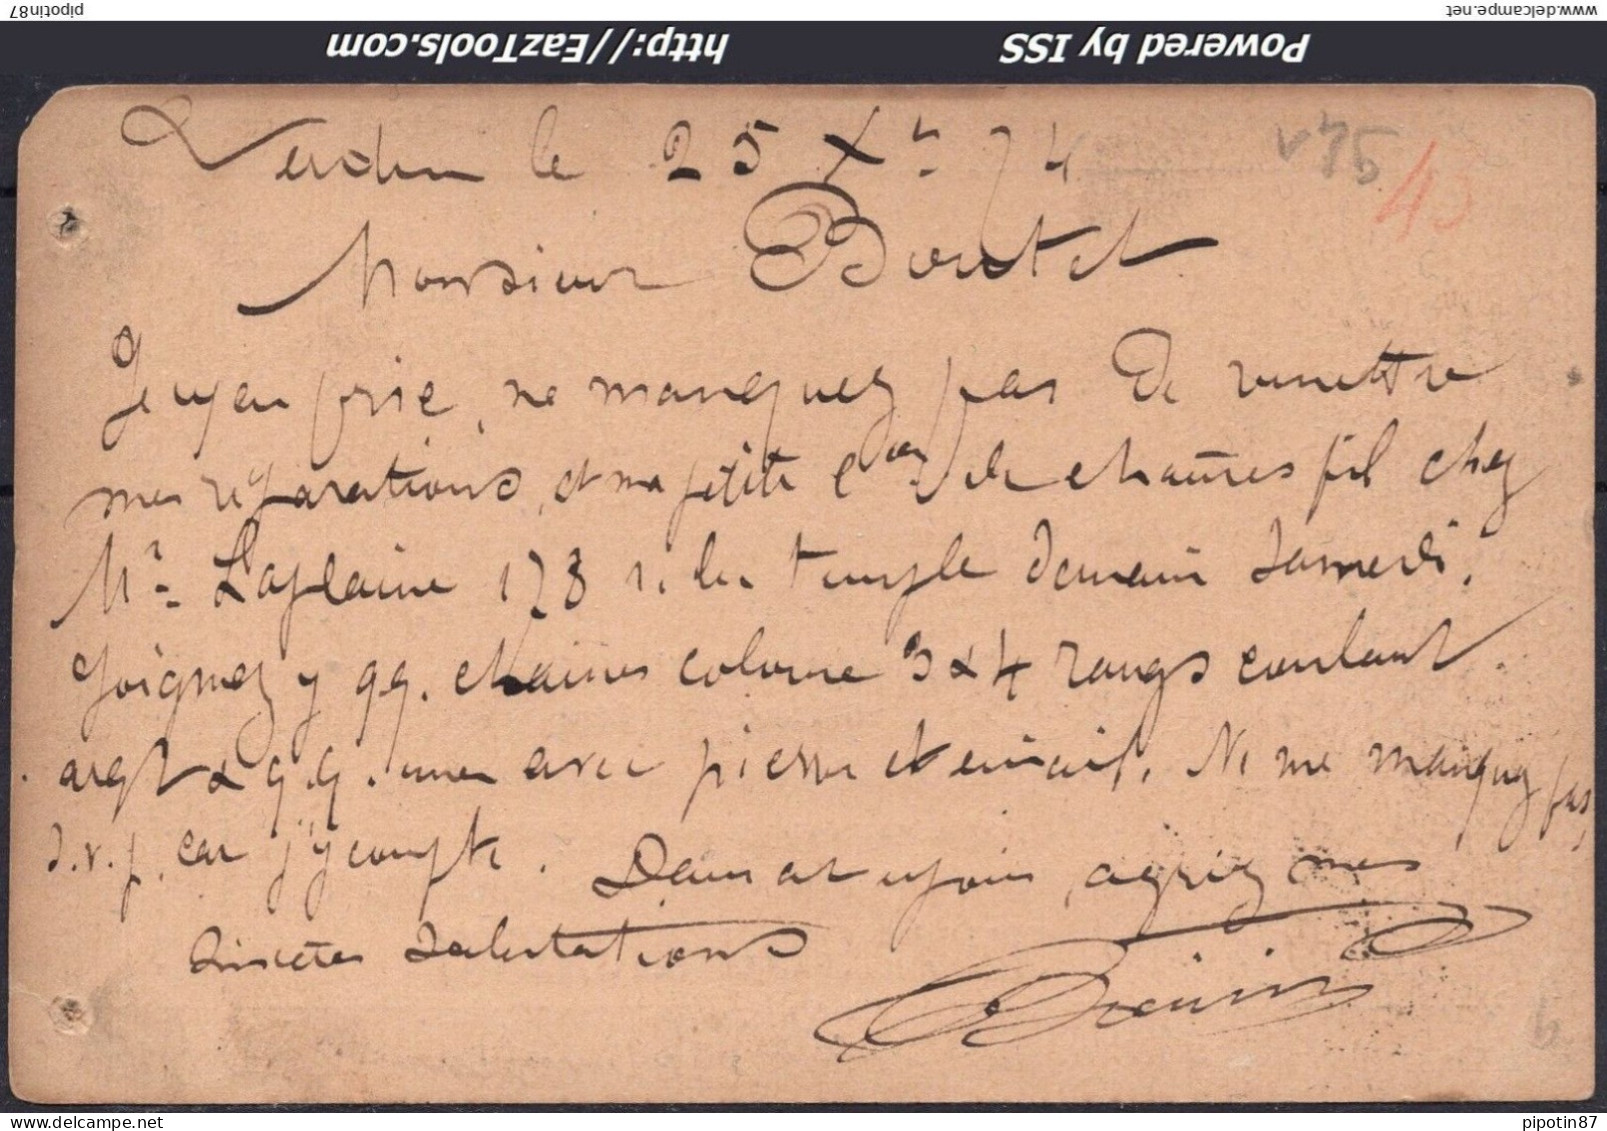 www.delcampe.net pipotin87
Powered by ISS http://EazTools.com
Verdun le 25 Xbre 74
475 43
Monsieur Boutet
Je vous prie, ne manquez pas de remettre
mes réparations, et ma petite de chaînes fil chez
Mr Laplaine 178 r. du temple demain samedi.
Joignez y qq. chaines colonne 3 & 4 rangs coulant
argt & q.q. unes avec pierre et émail. Ne me manquez pas,
s.v.p. car j'y compte. Dans cet espoir, agréez mes
sincères salutations
www.delcampe.net pipotin87